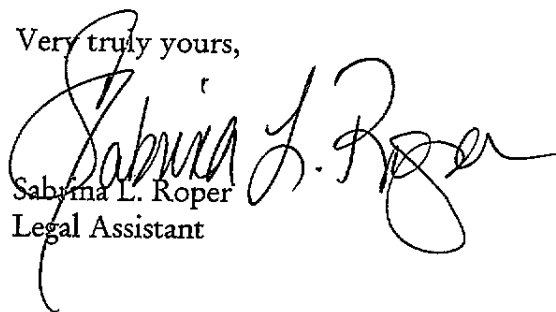 Very truly yours,
Sabrina L. Roper
Sabrina L. Roper
Legal Assistant